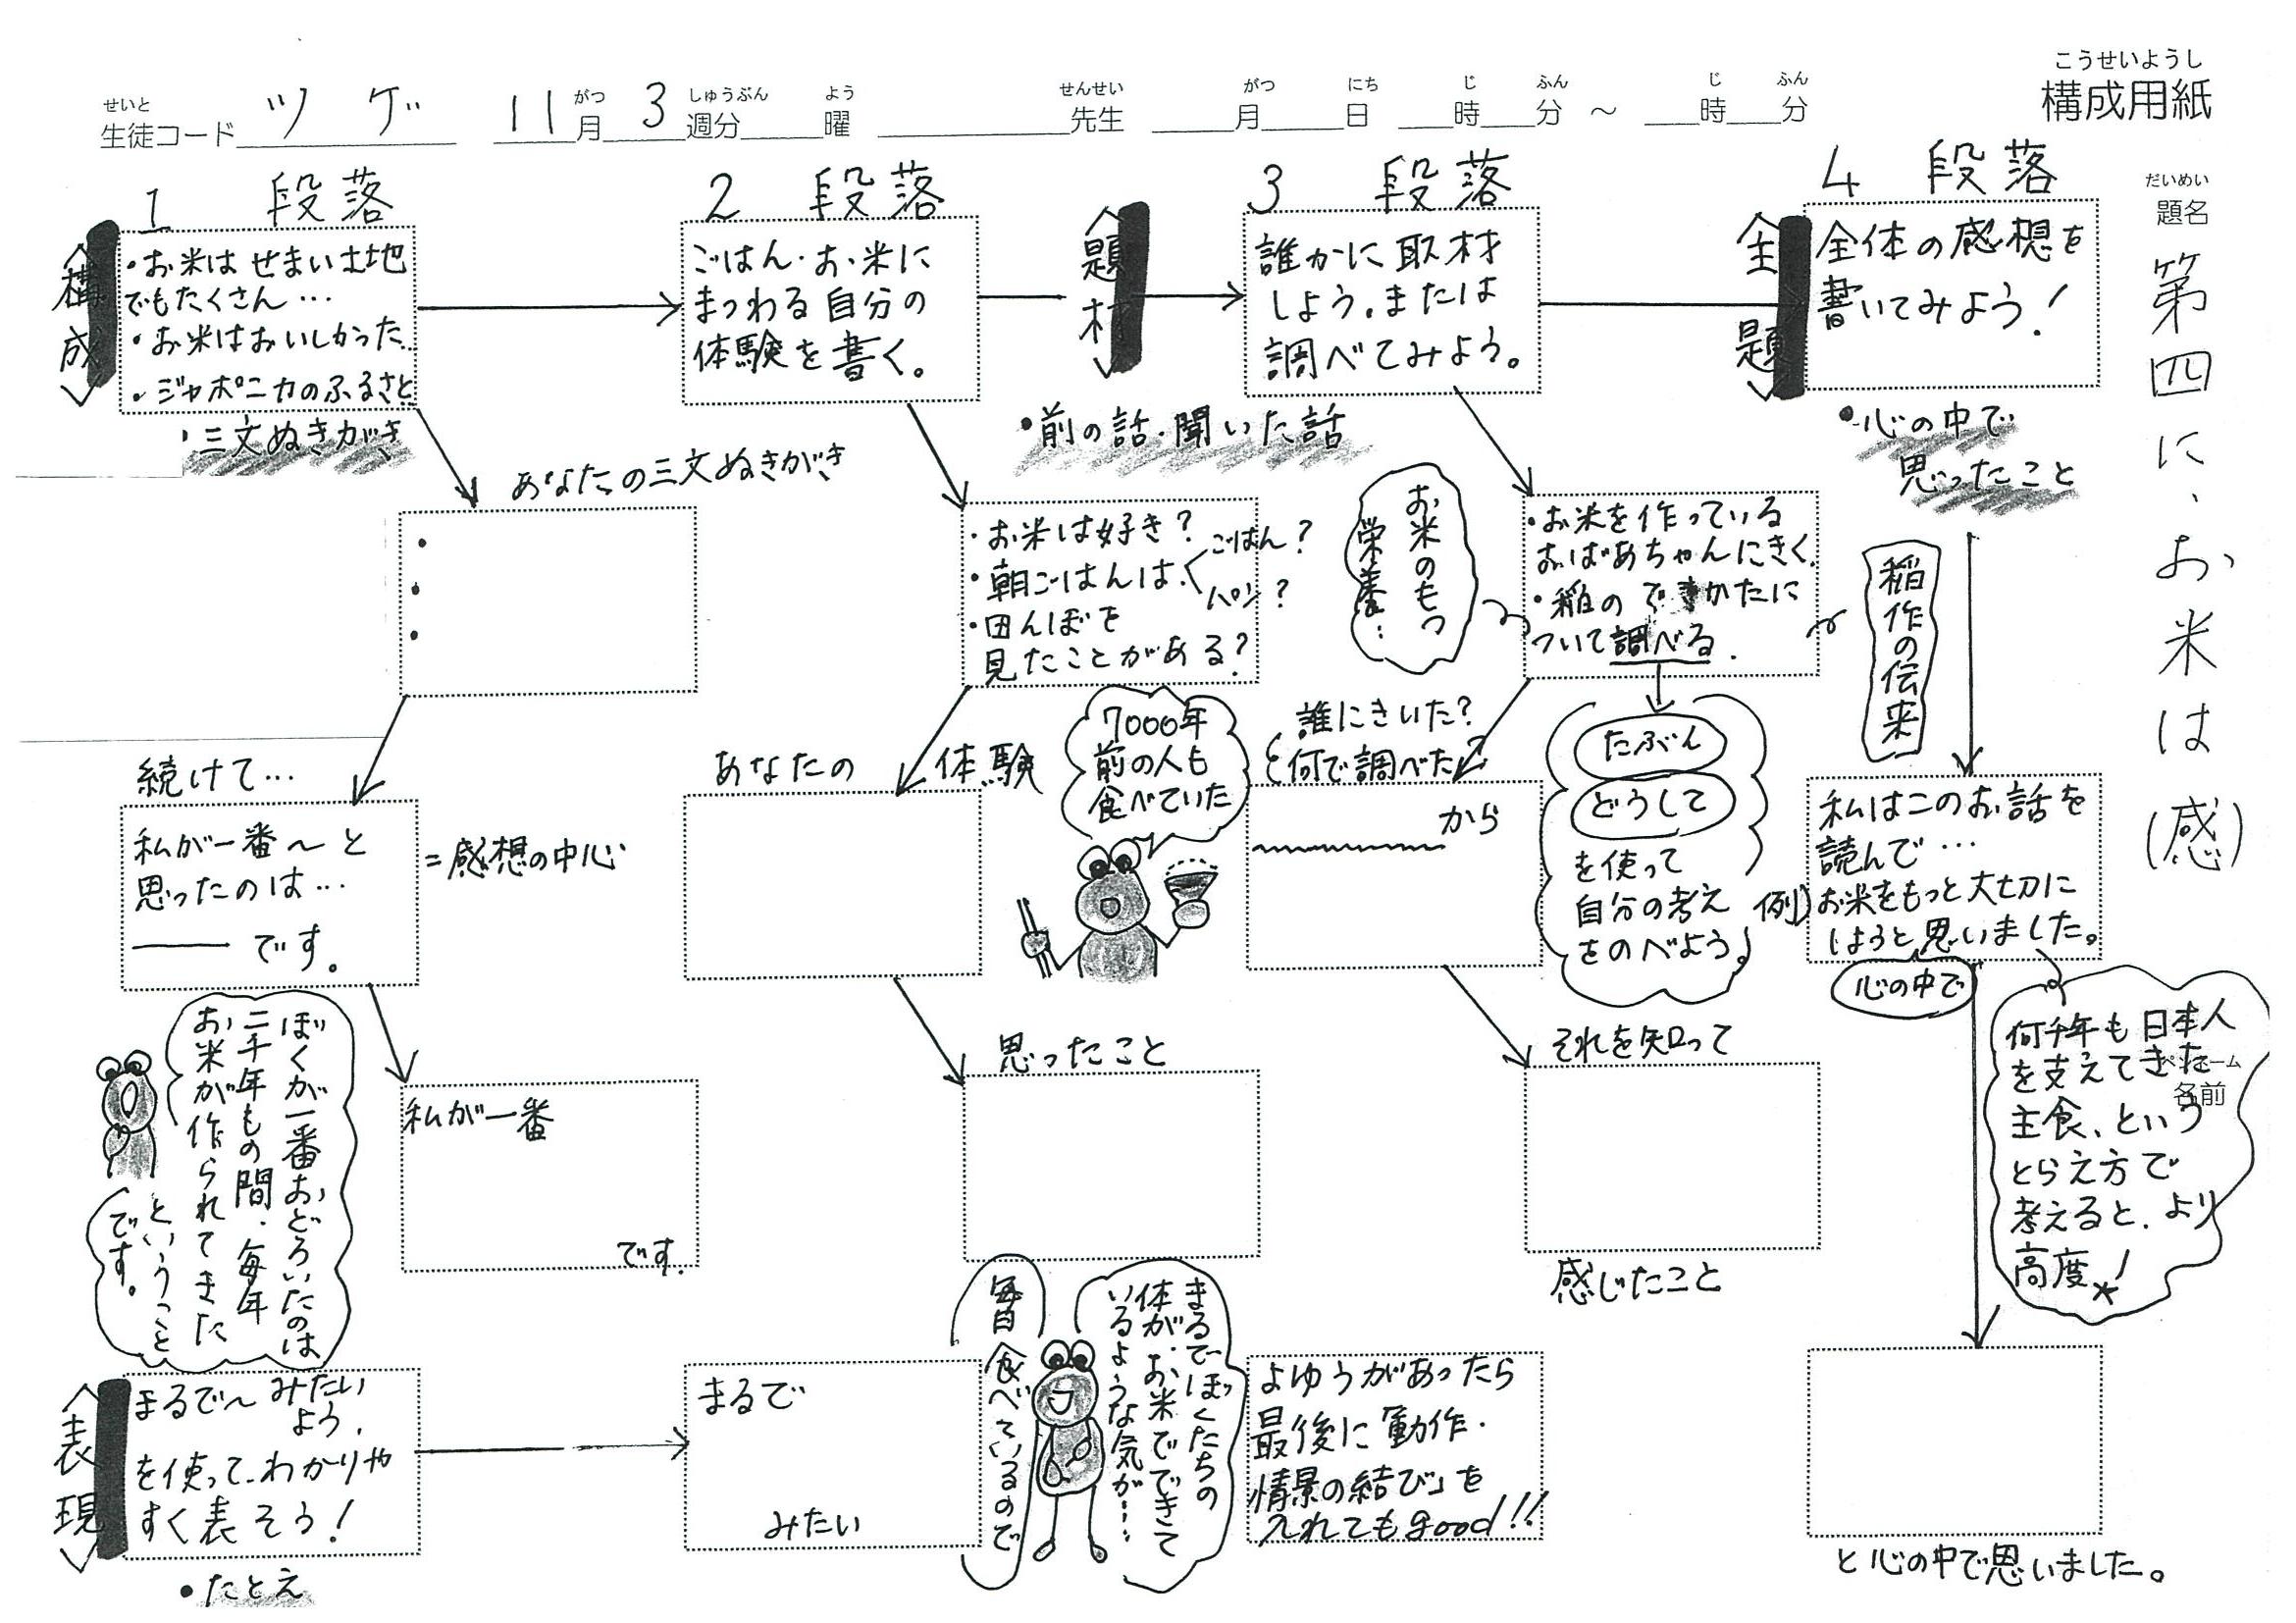 こうせいようし
構成用紙
せいと
生徒コード ツゲ 11月 3週分 曜 先生 月 日 時 分 ～ 時 分
がつ しゅうぶん よう せんせい がつ にち じ ふん じ ふん
だいめい
題名
第四に、お米は(感)
ペンネーム
名前
1 段落
<構成>
・お米はせまい土地
でもたくさん…
・お米はおいしかった…
・ジャポニカのふるさと
・三文ぬきがき
あなたの三文ぬきがき
・
・
・
続けて…
私が一番～と
思ったのは…
―― です。
=感想の中心
ぼくが一番おどろいたのは
二千年もの間、毎年
お米が作られてきた
ということ
です。
私が一番
です。
<表現>
まるで～みたい
よう、
を使って、わかりや
すく表そう!
・たとえ
まるで
みたい
2 段落
ごはん・お米に
まつわる自分の
体験を書く。
・お米は好き?
・朝ごはんは、
ごはん?
パン?
・田んぼを
見たことがある?
あなたの 体験
7000年
前の人も
食べていた
思ったこと
毎日食べているので
まるでぼくたちの
体が、お米でできて
いるような気が…
<題材>
・前の話・聞いた話
3 段落
誰かに取材
しよう。または
調べてみよう。
お米のもつ
栄養…
・お米を作っている
おばあちゃんにきく。
・稲のできかたに
ついて調べる。
稲作の伝来
誰にきいた?
何で調べた?
から
たぶん
どうして
を使って
自分の考え
をのべよう。
それを知って
感じたこと
よゆうがあったら
最後に「動作・
情景の結び」を
入れてもgood!!
4 段落
<主題>
全体の感想を
書いてみよう!
・心の中で
思ったこと
例)
私はこのお話を
読んで…
お米をもっと大切に
しようと思いました。
心の中で
何千年も日本人
を支えてきた
主食、という
とらえ方で
考えると、より
高度!
と心の中で思いました。